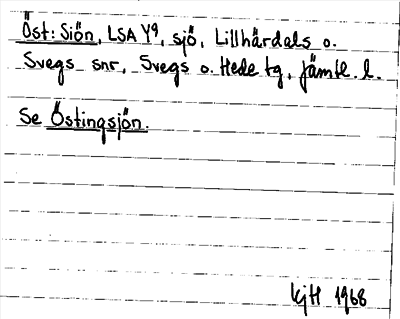 Öst: Siön, LSA Y9, sjö, Lillhärdals o.
Svegs snr, Svegs o. Hede tg, Jämtl. l.
Se Östingsjön.
KjH 1968